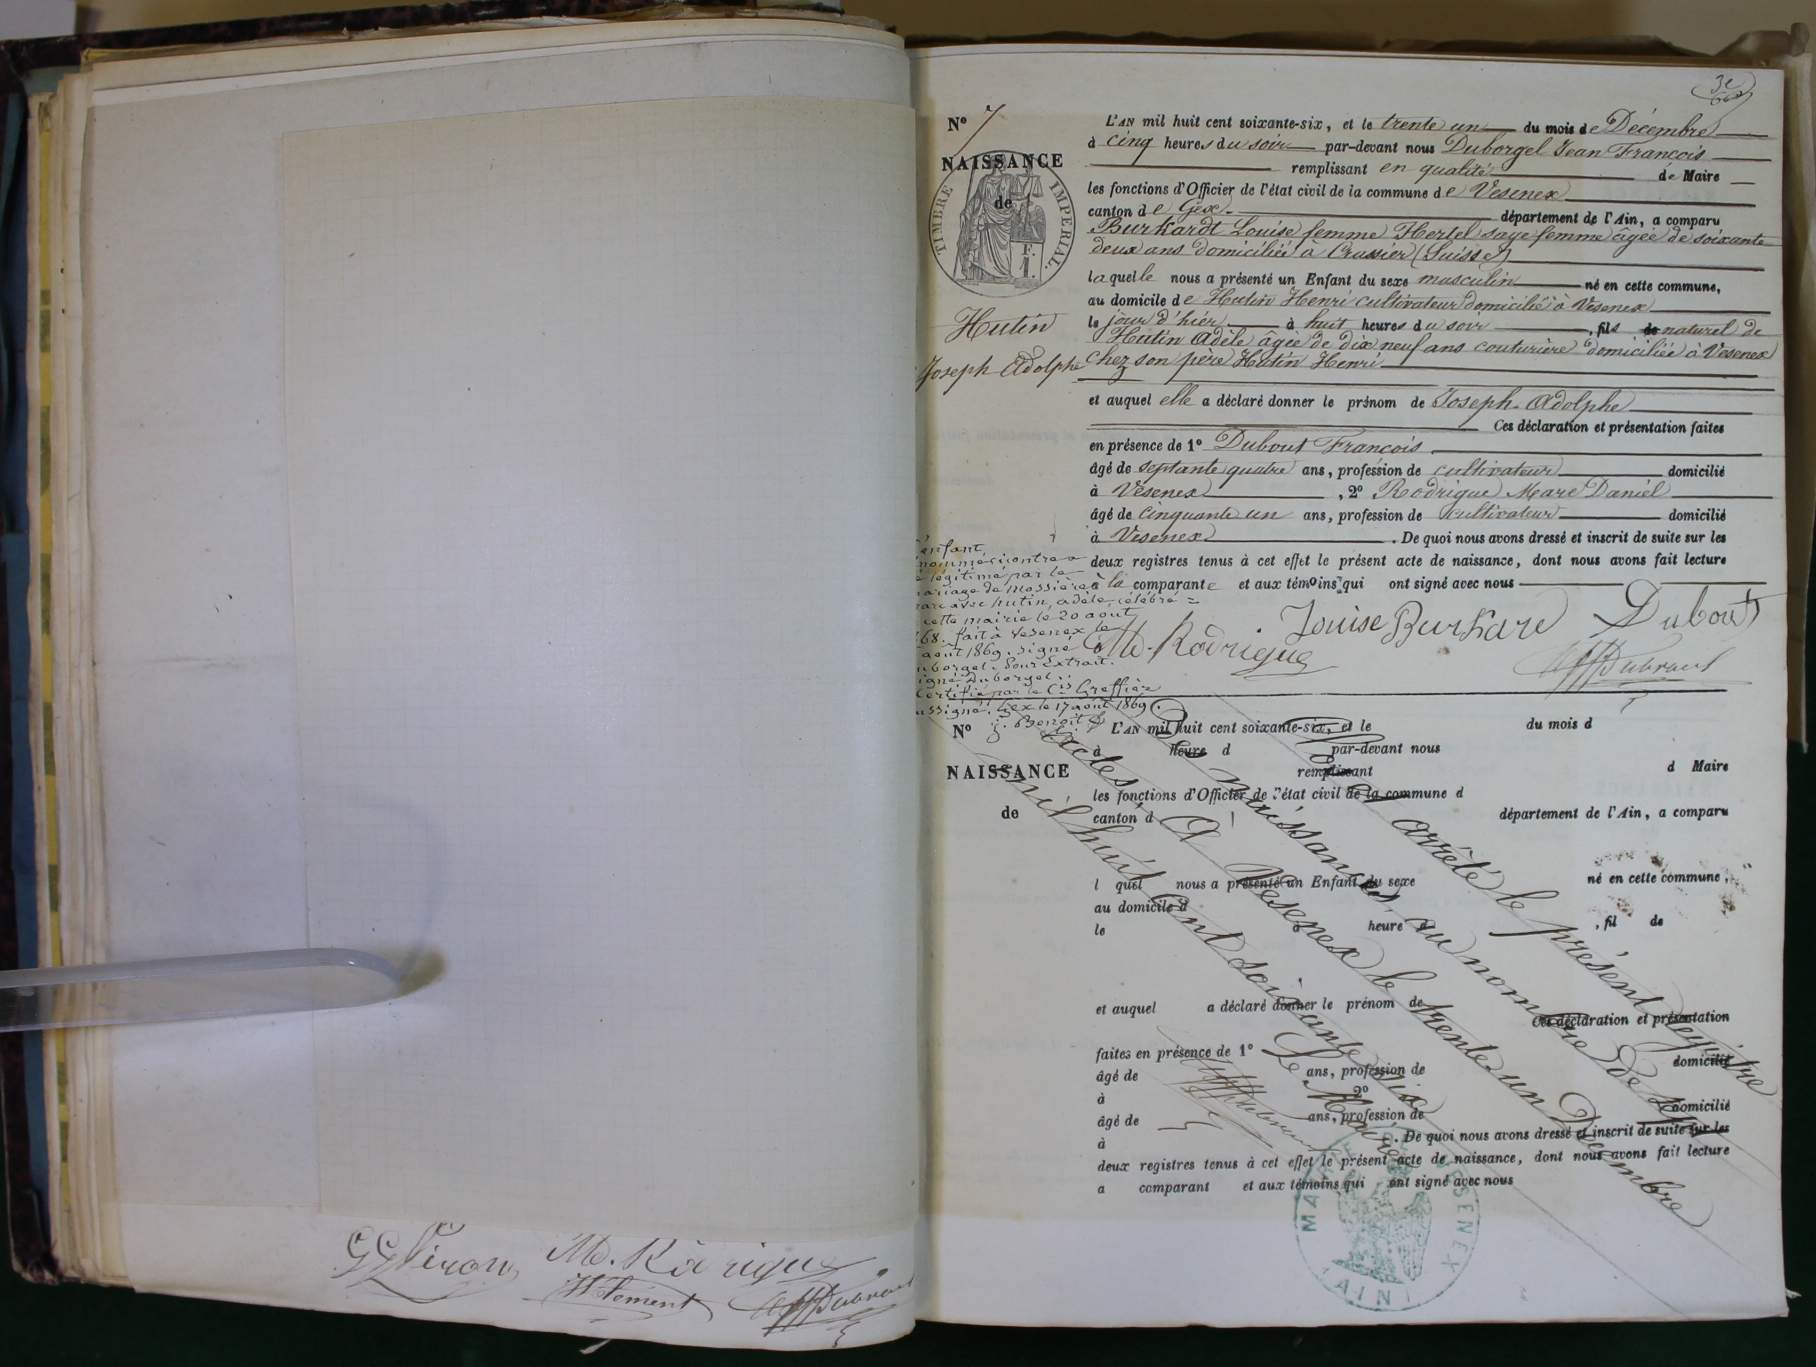 3e
No 7
NAISSANCE
de
TIMBRE IMPERIAL.
F.
1.
Hutin
Joseph Adolphe
L'AN mil huit cent soixante-six, et le trente un du mois de Décembre
à cinq heures du soir par-devant nous Duborgel Jean François
remplissant en qualité de Maire
les fonctions d'Officier de l'état civil de la commune de Vesenex
canton de Gex. département de l'Ain, a comparu
Burkardt Louise femme Hertel sage femme âgée de soixante
deux ans domiciliée à Crassier (Suisse)
laquelle nous a présenté un Enfant du sexe masculin né en cette commune,
au domicile de Hutin Henri cultivateur domicilié à Vesenex
le jour d'hier à huit heures du soir, fils naturel de
Hutin Adèle âgée de dix neuf ans couturière domiciliée à Vesenex
chez son père Hutin Henri
et auquel elle a déclaré donner le prénom de Joseph-Adolphe
Ces déclaration et présentation faites
en présence de 1o Dubout François
âgé de septante quatre ans, profession de cultivateur domicilié
à Vesenex, 2o Rodrigue Marc Daniel
âgé de cinquante un ans, profession de cultivateur domicilié
à Vesenex. De quoi nous avons dressé et inscrit de suite sur les
deux registres tenus à cet effet le présent acte de naissance, dont nous avons fait lecture
à la comparante et aux témoins qui ont signé avec nous
Louise Burkard Dubout
MD. Rodrigue
enfant
nommé ci contre a
é légitimé par le
mariage de Mossière
marc avec hutin, adèle, célébré =
cette mairie le 20 août
68. fait à Vesenex le
août 1869. signé
uborgel. Pour Extrait.
signé Duborgel.
Certifié par le Cis Greffier
ussigné. Gex le 17 août 1869.
J. Benoit
No
NAISSANCE
de
L'AN mil huit cent soixante-six, et le du mois d
à heure d par-devant nous
remplissant d Maire
les fonctions d'Officier de l'état civil de la commune d
canton d département de l'Ain, a comparu
l quel nous a présenté un Enfant du sexe né en cette commune,
au domicile d
le à heure d , fil de
et auquel a déclaré donner le prénom de
Ces déclaration et présentation
faites en présence de 1o domicilié
âgé de ans, profession de
à 2o domicilié
âgé de ans, profession de
à . De quoi nous avons dressé et inscrit de suite sur les
deux registres tenus à cet effet le présent acte de naissance, dont nous avons fait lecture
a comparant et aux témoins qui ont signé avec nous
arrêté le présent registre
Des naissances, au nombre de sept
actes, à Vesenex le trente un Décembre
mil huit cent soixante six
Le Maire
AIN
MD. Rodrigue